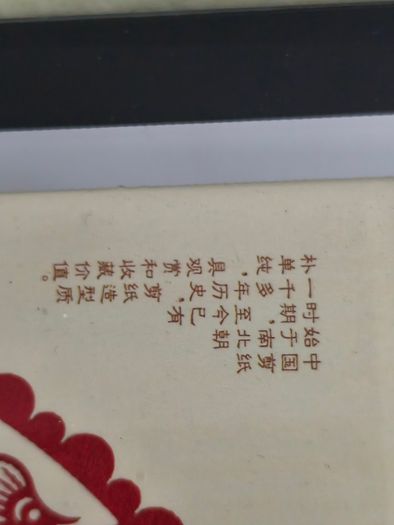 中国剪纸
始于南北朝
时期，至今已有
一千多年历史，剪纸造型质
朴单纯，具观赏和收藏价值。